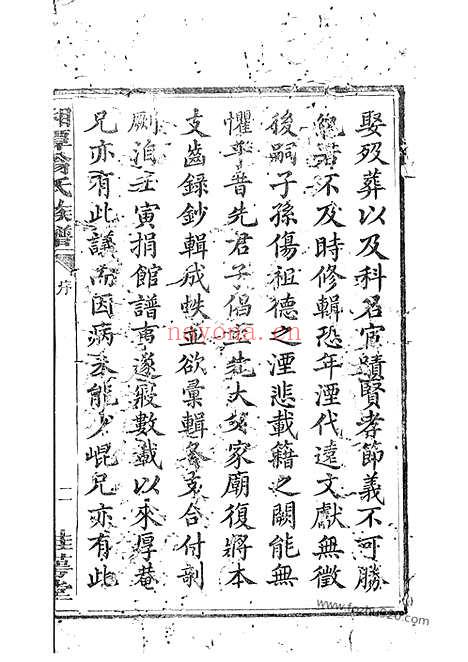 娶歿葬以及科名宦蹟賢孝節義不可勝
若不及時修輯恐年湮代遠文獻無徵
後嗣子孫傷祖德之湮悲載籍之闕能無
懼乎昔先君子倡大家廟復將本
支齒錄鈔輯成帙並欲彙輯各支合付剞
劂洎壬寅捐館譜事遂寢數載以來厚菴
兄亦有此議而因病未能少崐兄亦有此
湘潭氏族譜
序
二
堂
nayona.cn
www.fozhu920.com